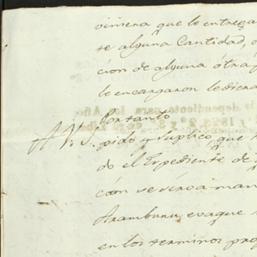 viniera que le entrega
se alguna Cantidad, o
cion de alguna otra
le encargaron
Portanto
A V. S. pido y suplico que
do el Expediente de
cion se sirva man
Aramburu, evaque
en los terminos pro